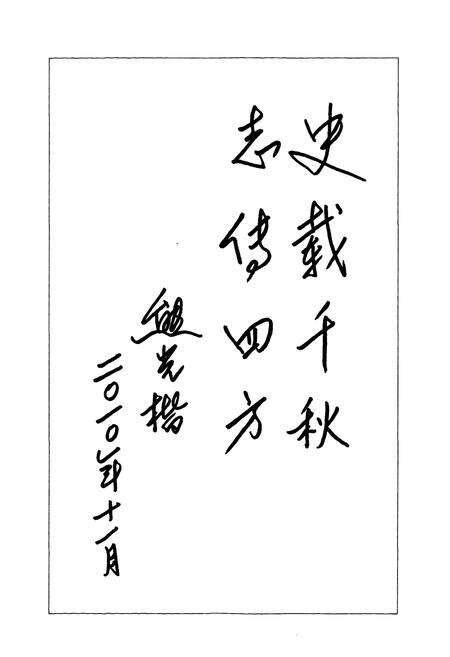 史載千秋
志傳四方
熊光楷
二〇一〇年十一月